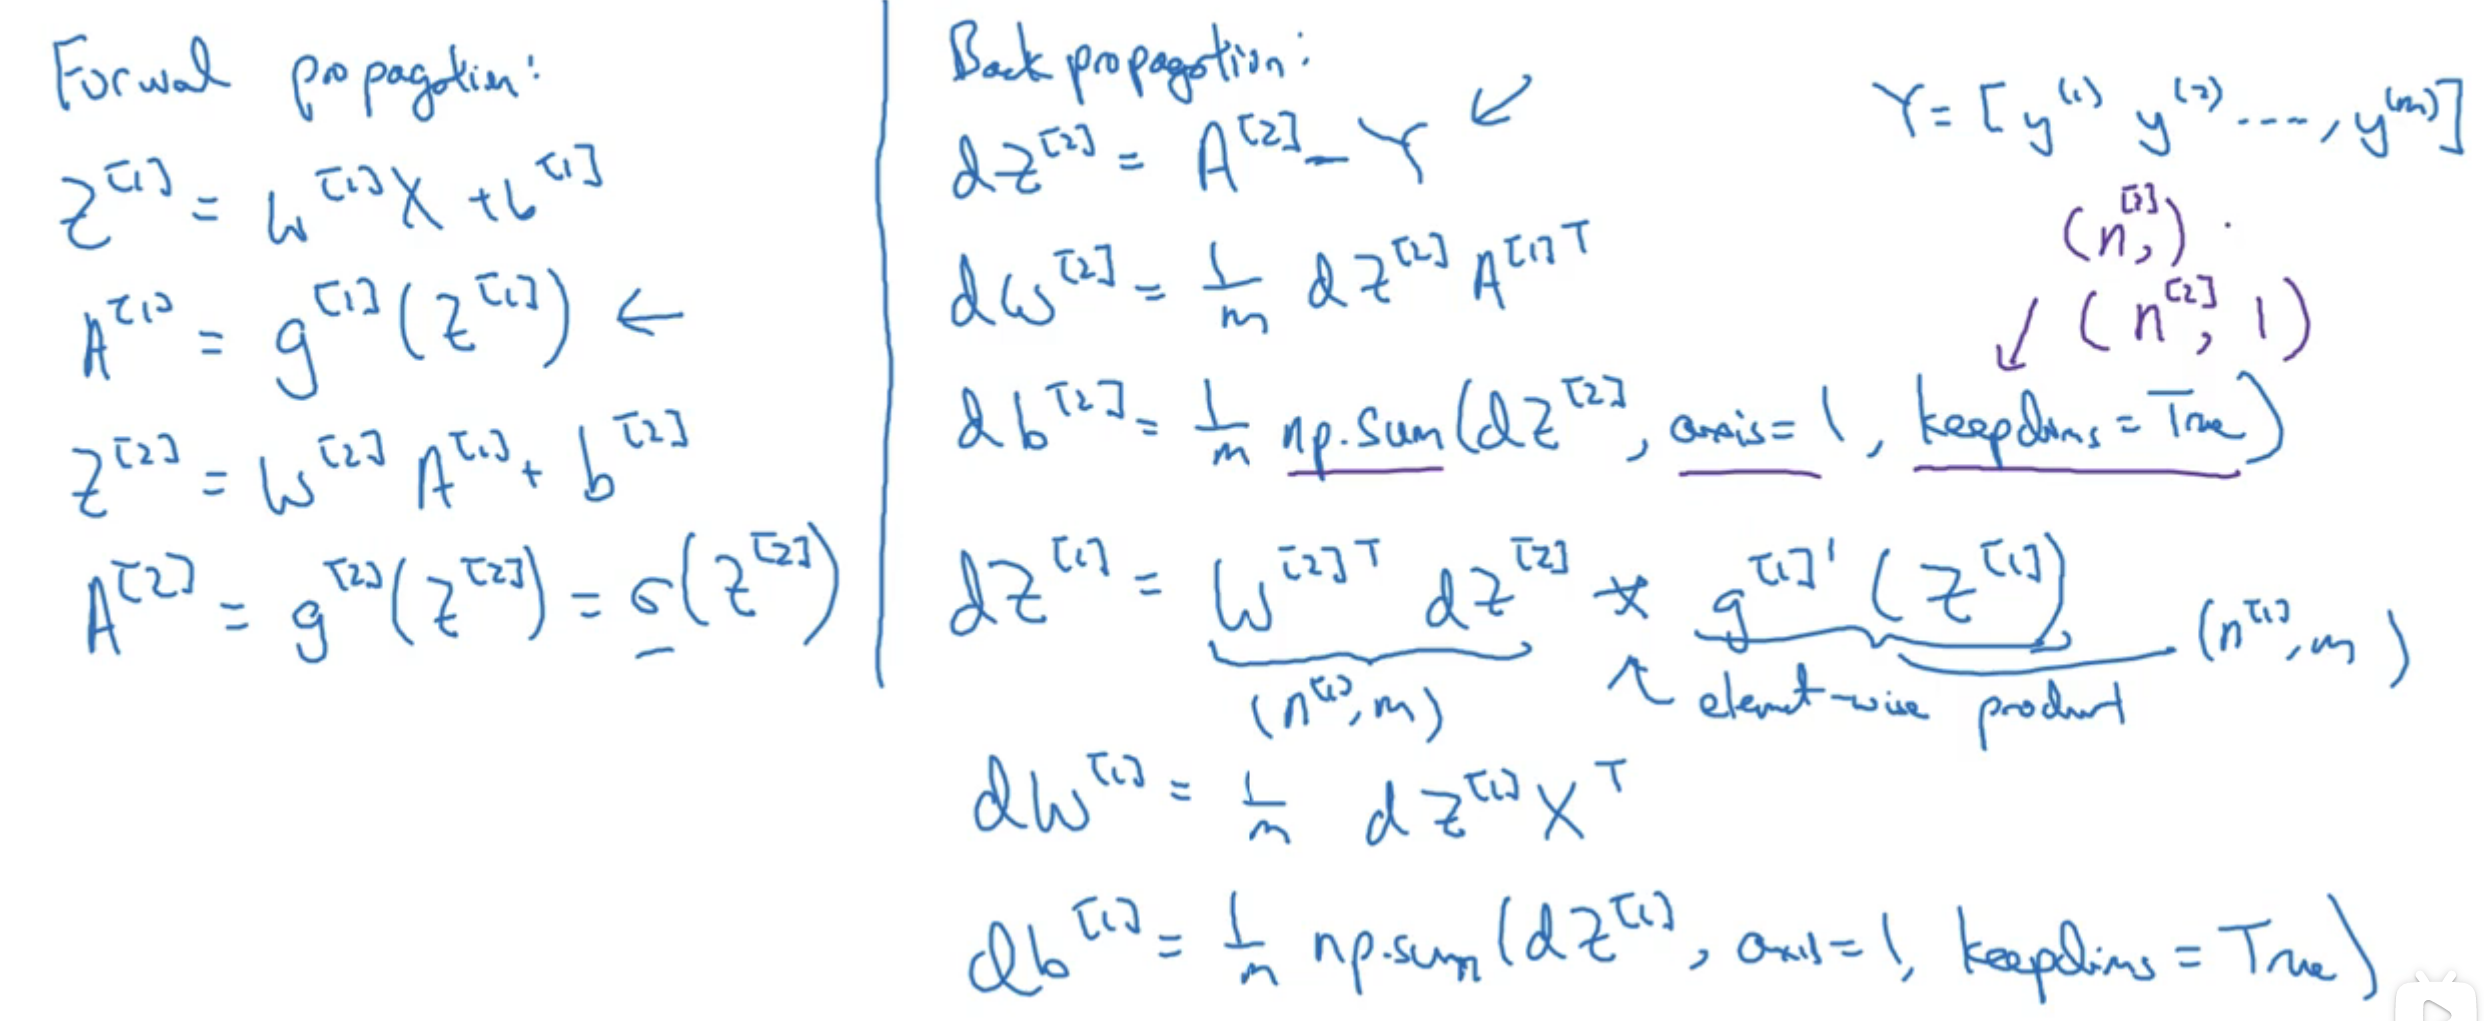 Forward propagation:
Z^[1] = W^[1]X + b^[1]
A^[1] = g^[1](Z^[1]) ←
Z^[2] = W^[2] A^[1] + b^[2]
A^[2] = g^[2](Z^[2]) = σ(Z^[2])
Back propagation:
dZ^[2] = A^[2] - Y ↙
Y = [y^(1) y^(2) ...., y^(m)]
dW^[2] = 1/m dZ^[2] A^[1]T
(n^[2],)
↙ (n^[2], 1)
db^[2] = 1/m np.sum(dZ^[2], axis=1, keepdims=True)
dZ^[1] = W^[2]T dZ^[2] * g^[1]'(Z^[1])
(n^[1], m)
(n^[1], m)
↖ element-wise product
dW^[1] = 1/m dZ^[1] X^T
db^[1] = 1/m np.sum(dZ^[1], axis=1, keepdims=True)